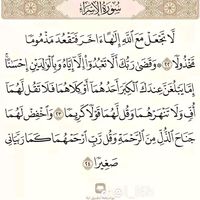 سُورَةُ الإِسْرَاء
لَّا تَجْعَلْ مَعَ اللَّهِ إِلَٰهًا ءَاخَرَ فَتَقْعُدَ مَذْمُومًا
مَّخْذُولًا ٢٢ وَقَضَىٰ رَبُّكَ أَلَّا تَعْبُدُوٓا۟ إِلَّآ إِيَّاهُ وَبِالْوَٰلِدَيْنِ إِحْسَٰنًا
إِمَّا يَبْلُغَنَّ عِندَكَ الْكِبَرَ أَحَدُهُمَآ أَوْ كِلَاهُمَا فَلَا تَقُل لَّهُمَآ
أُفٍّ وَلَا تَنْهَرْهُمَا وَقُل لَّهُمَا قَوْلًا كَرِيمًا ٢٣ وَاخْفِضْ لَهُمَا
جَنَاحَ الذُّلِّ مِنَ الرَّحْمَةِ وَقُل رَّبِّ ارْحَمْهُمَا كَمَا رَبَّيَانِى
صَغِيرًا ٢٤